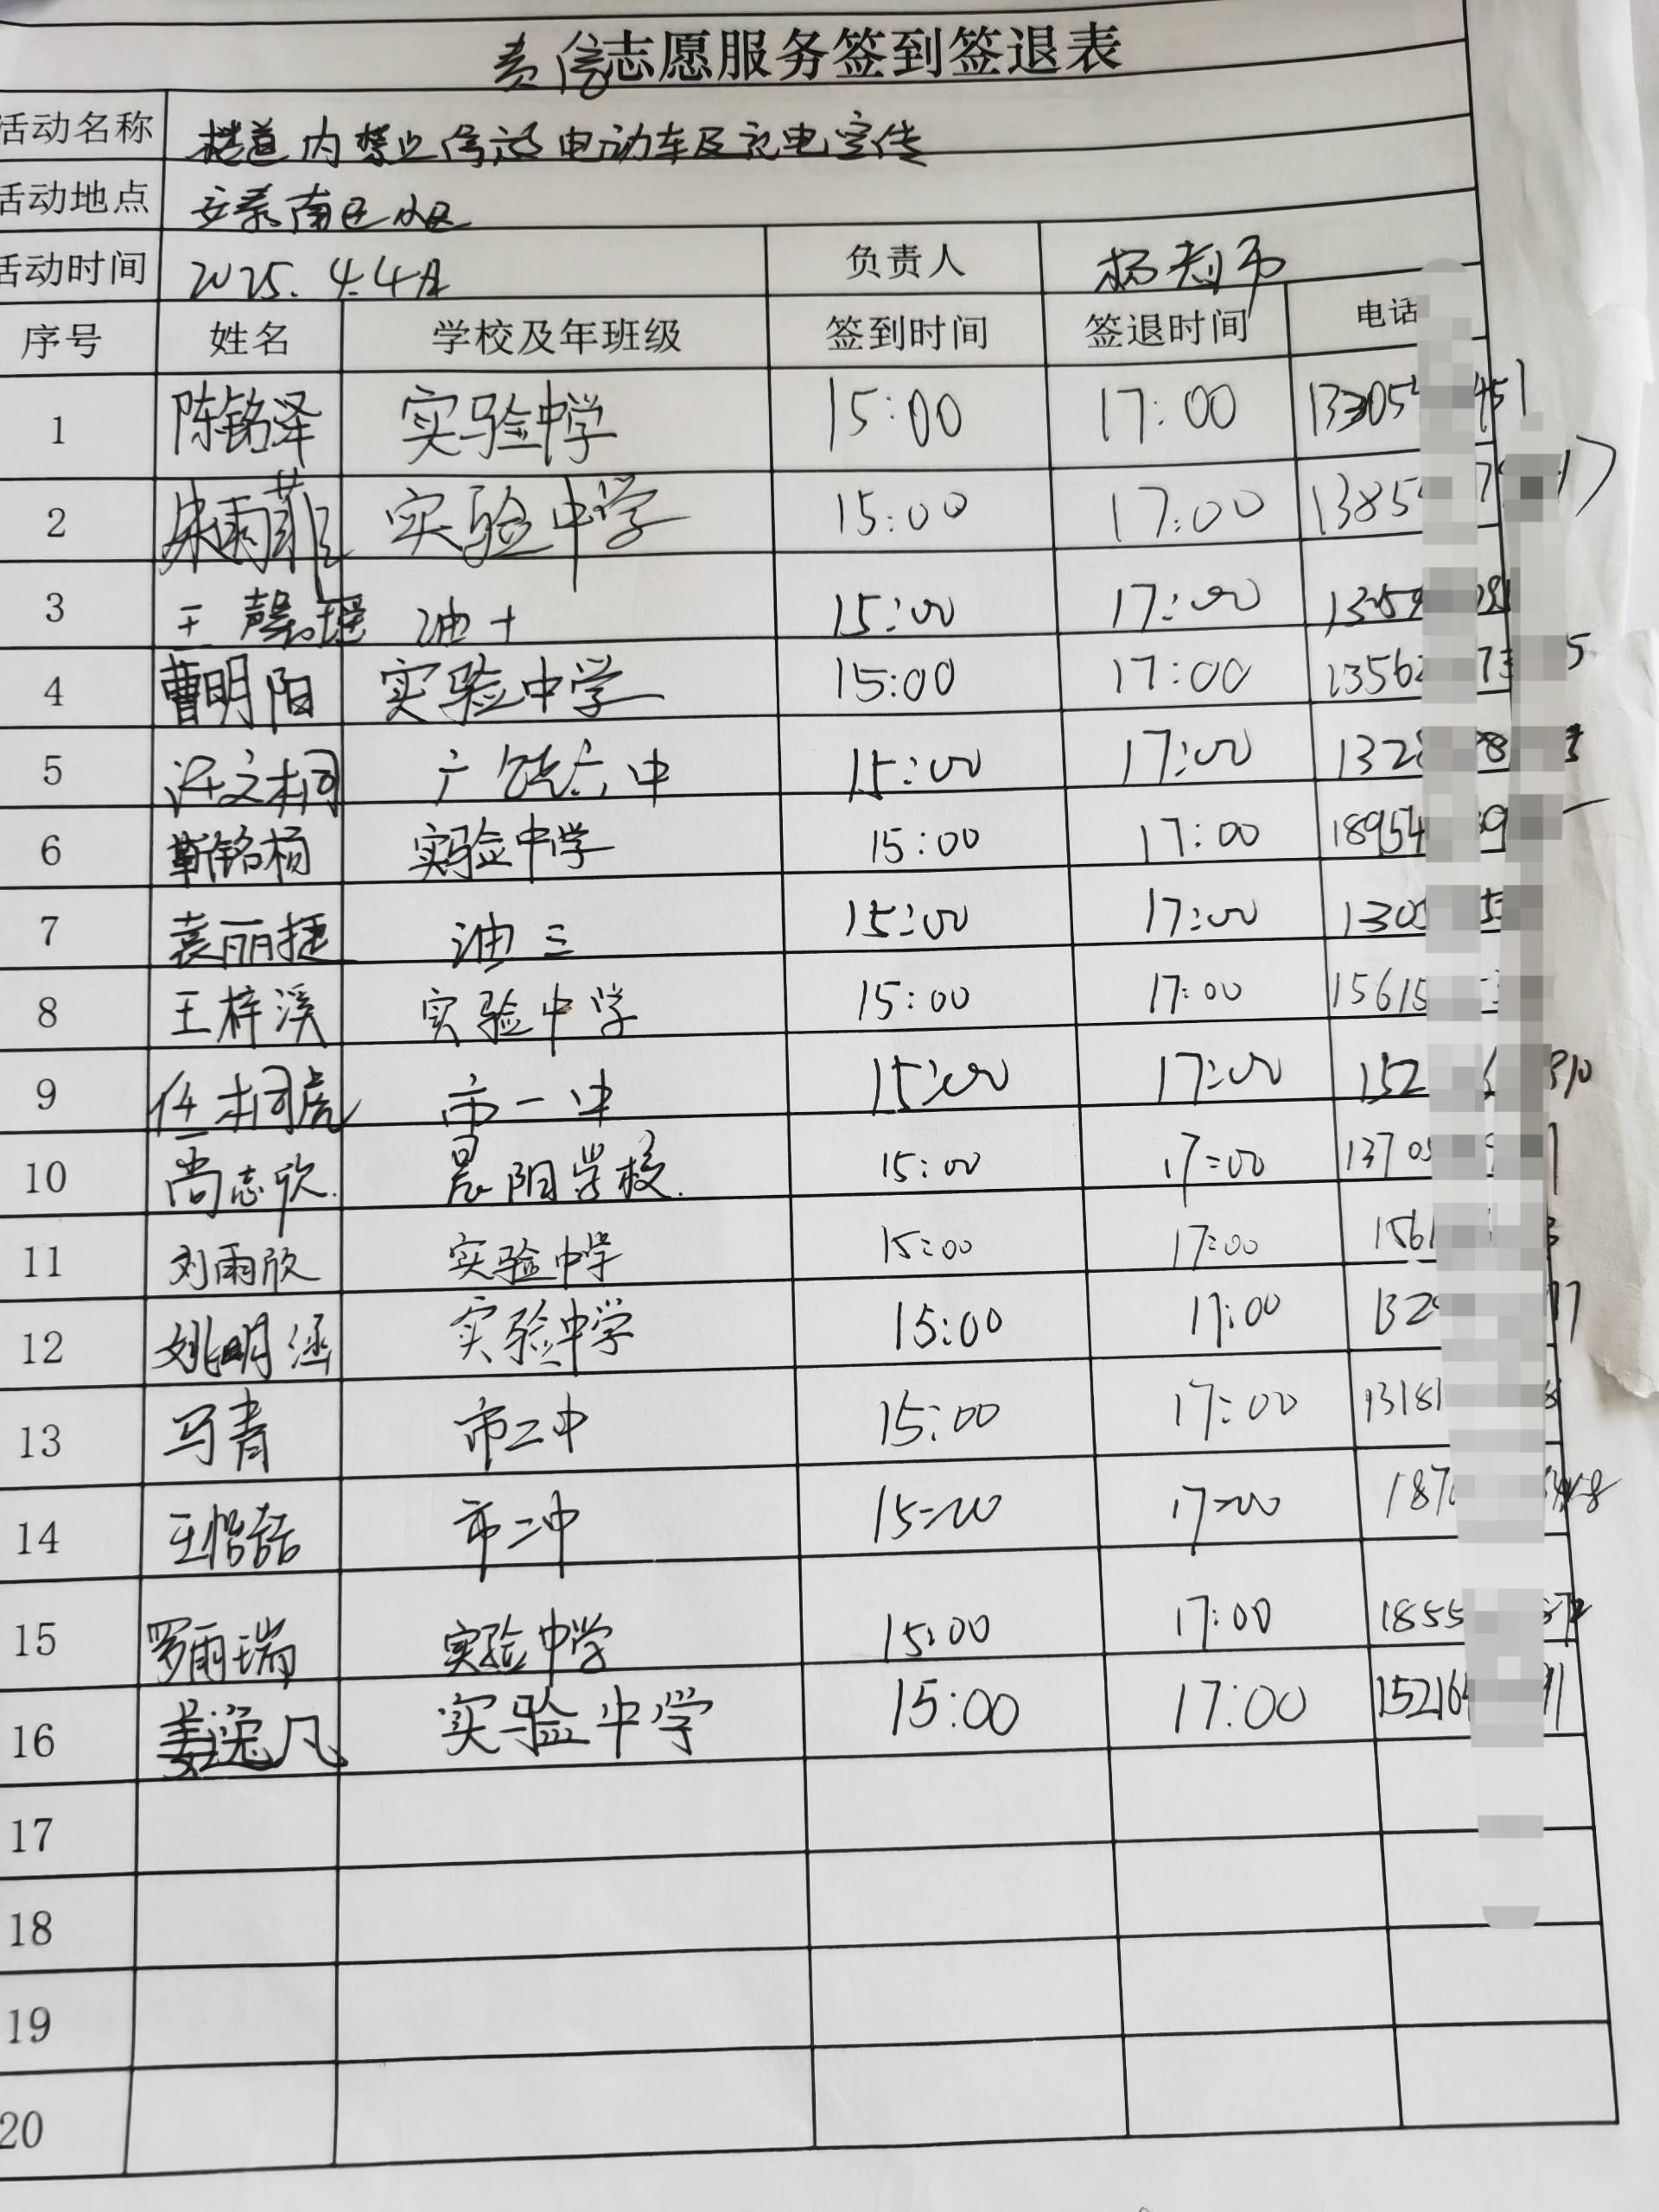 志愿服务签到签退表
活动名称 楼道内禁止停放电动车及充电宣传
活动地点 安泰南区小区
活动时间 2025.4.4日 负责人 杨老师
序号 姓名 学校及年班级 签到时间 签退时间 电话
1 陈铭泽 实验中学 15:00 17:00
2 朱雨菲 实验中学 15:00 17:00
3 王馨瑶 油十 15:00 17:00
4 曹明阳 实验中学 15:00 17:00
5 文桐 广饶六中 15:00 17:00
6 靳铭杨 实验中学 15:00 17:00
7 袁丽捷 油三 15:00 17:00
8 王梓溪 实验中学 15:00 17:00
9 任桐虎 市一中 15:00 17:00
10 尚志欣 晨阳学校 15:00 17:00
11 刘雨欣 实验中学 15:00 17:00
12 姚明涵 实验中学 15:00 17:00
13 马青 市二中 15:00 17:00
14 王怡 市二中 15:00 17:00
15 罗雨瑞 实验中学 15:00 17:00
16 姜逸凡 实验中学 15:00 17:00
17
18
19
20